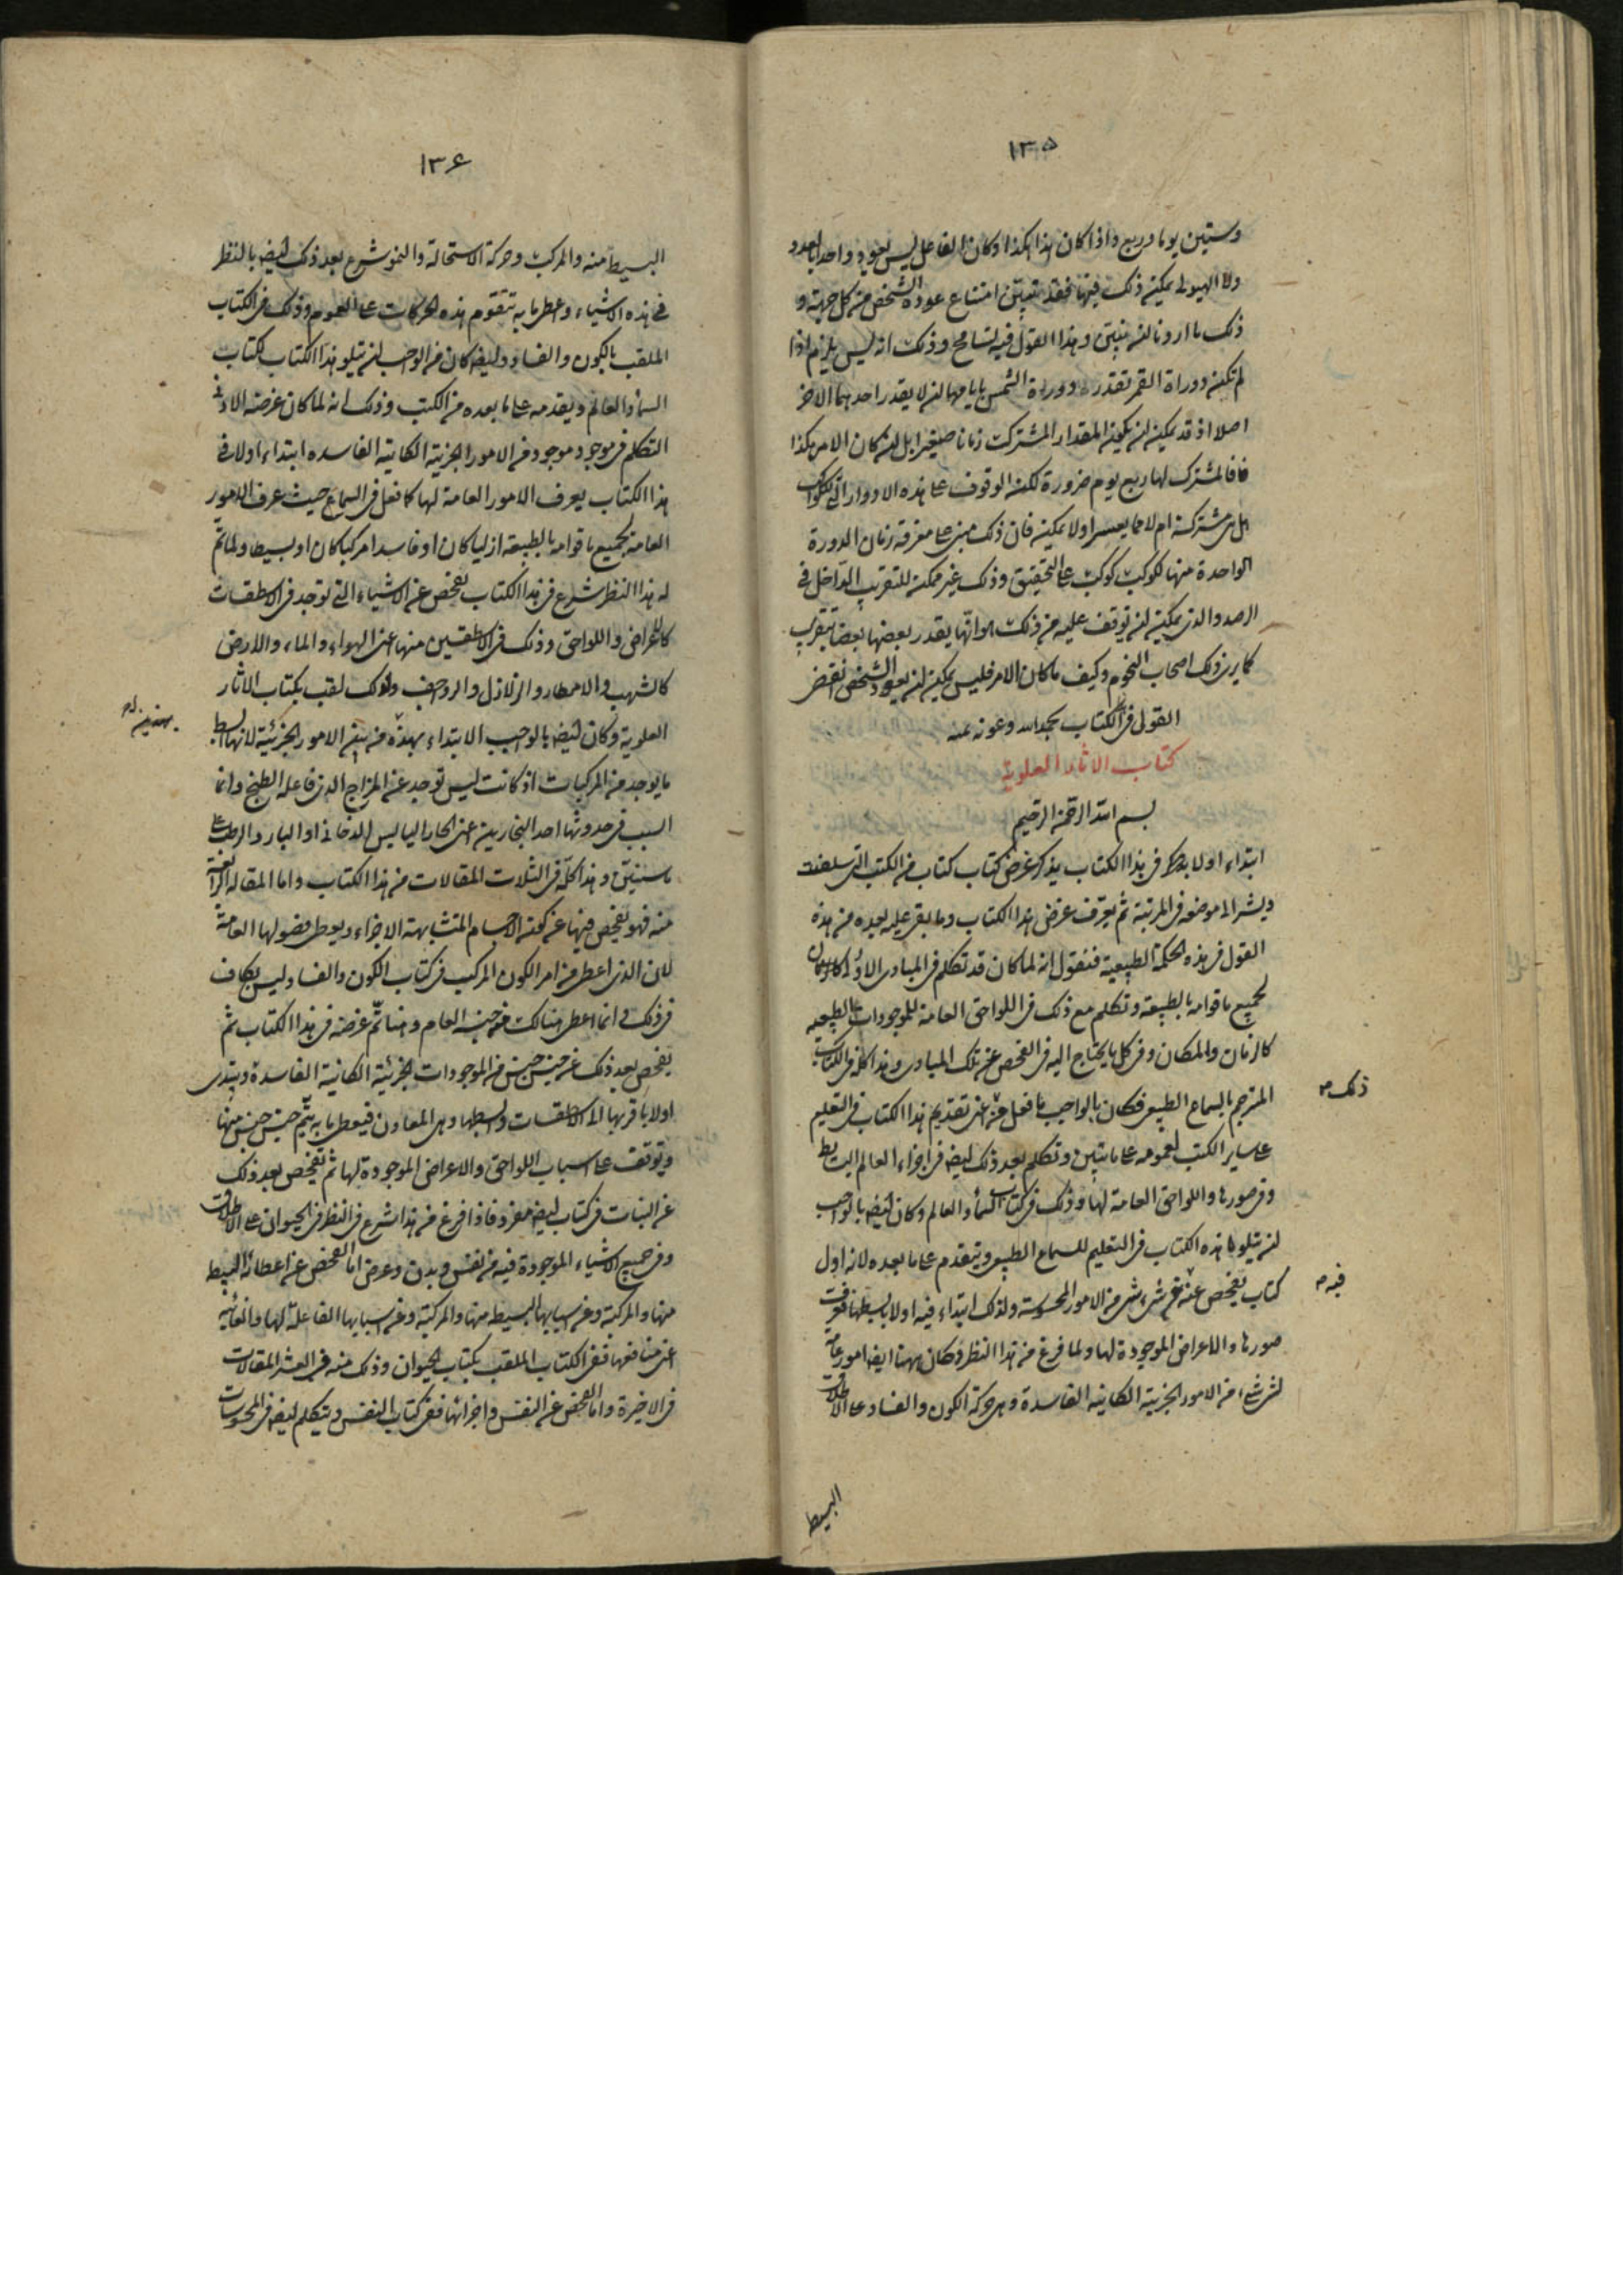 ١٣٥
وستين يوما وربع واذا كان هذا هكذا وكان الفاعل ليس يعود واحدا بالعدد
ولا الهيولى يمكن ذلك فيها فقد تبين امتناع عودة الشخص من كل جهة و
ذلك ما اردنا ان نبين وهذا القول فيه تسامح وذلك انه ليس يلزم اذا
لم تكن دوراة القمر تقدر دورة الشمس بايامها ان لا يقدر احدهما الاخر
اصلا اذ قد يمكن ان يكون المقدار المشترك زمانا صغيرا بل ان كان الامر هكذا
فالمشترك لها ربع يوم ضرورة لكن الوقوف على هذه الادوار التى للكواكب
هل هى مشتركة ام لا مما يعسر اولا يمكن فان ذلك مبنى على معرفة زمان الدورة
الواحدة منها لكوكب كوكب على التحقيق وذلك غير ممكن للتقريب الداخل فى
الرصد والذى يمكن ان توقف عليه من ذلك هو انها يقدر بعضها بعضا بتقريب
كما يرى ذلك اصحاب النجوم وكيف ما كان الامر فليس يمكن ان يعود الشخص انقضى
القول فى الكتاب بحمد الله وعونه عنه
كتاب الاثار العلوية
بسم الله الرحمن الرحيم
ابتداء اولا فى هذا الكتاب يذكر غرض كتاب كتاب من الكتب التى سلفت
ويشير الى موضعه فى المرتبة ثم يعرف غرض هذا الكتاب وما بقى عليه بعده من هذه
القول فى هذه الحكمة الطبيعية فنقول انه لما كان قد تكلم فى المبادى الاول
لجميع ما قوامه بالطبيعة وتكلم مع ذلك فى اللواحق العامة للموجودات الطبيعية
كالزمان والمكان وفى كل ما يحتاج اليه فى الفحص عن تلك المبادى وهذا كله فى الكتاب
المترجم بالسماع الطبيعى فكان بالواجب ما فعل عن تقديم هذا الكتاب فى التعليم
ذلك صح
على ساير الكتب لعمومه على ما تبين وتكلم بعد ذلك ايضا فى اجزاء العالم البسيط
وفى صورها واللواحق العامة لها وذلك فى كتاب السماء والعالم وكان ايضا بالواجب
ان يتلو هذه الكتاب فى التعليم للسماع الطبيعى ويتقدم على ما بعده لانه اول
كتاب يفحص عن شئ شئ من الامور المحسوسة ولذلك ابتداء فيه اولا بابسطها فعرفت
فيه صح
صورها والاعراض الموجودة لها ولما فرغ من هذا النظر وكان ههنا ايضا امور عامة
لشئ شئ من الامور الجزيية الكاينة الفاسدة وهى حركة الكون والفساد على الاطلاق
البسيط
١٣۶
البسيط منه والمركب وحركة الاستحالة والنمو شرع بعد ذلك ايضا بالنظر
فى هذه الاشياء واعطى ما به تتقوم هذه الحركات على العموم وذلك فى الكتاب
الملقب بالكون والفساد وايضا كان من الواجب ان يتلو هذا الكتاب لكتاب
السماء والعالم ويقدمه على ما بعده من الكتب وذلك انه لما كان غرضه الاول
التكلم فى موجود موجود من الامور الجزيية الكاينة الفاسده ابتداء اولا فى
هذا الكتاب يعرف الامور العامة لها كما فعل فى السماع حيث عرف الامور
العامة لجميع ما قوامه بالطبيعة ازليا كان او فاسدا مركبا كان او بسيطا ولما تم
له هذا النظر شرع فى هذا الكتاب يفحص عن الاشياء التى توجد فى الاسطقسات
كالاعراض واللواحق وذلك فى الاسطقسين منها اعنى الهواء والماء والارض
كالشهب والامطار والزلازل والرواجف ولذلك لقب بكتاب الاثار
العلوية وكان ايضا بالواجب الابتداء بهذه من بين الامور الجزئية لانها ابسط
ما يوجد من المركبات اذ كانت ليس توجد عن المزاج الذى فاعله الطبخ وانما
السبب فى حدوثها احد البخارين اعنى الحار اليابس الدخانى او البارد الرطب على
ما سنبين وهذا كله فى الثلاث المقالات من هذا الكتاب واما المقالة الرابعة
منه فهو يفحص فيها عن كون الاجسام المتشابهة الاجزاء ويعطى فصولها العامة
لان الذى اعطى من امر الكون المركب فى كتاب الكون والفساد ليس بكاف
فى ذلك وانما اعطى هناك الجنس العام وهنا تم غرضه فى هذا الكتاب ثم
يفحص بعد ذلك عن جنس جنس من الموجودات الجزئية الكانية الفاسدة ويبتدى
اولا باقربها الى الاسطقسات وابسطها وهى المعادن فيعطى ما به يتم جنس جنس منها
ويوقف على اسباب اللواحق والاعراض الموجودة لها ثم يفحص بعد ذلك
عن النبات فى كتاب ايضا مفرد فاذا فرغ من هذا شرع فى النظر فى الحيوان على الاطلاق
وفى جميع الاشياء الموجودة فيه من نفس وبدن وعرض اما الفحص عن اعضائه البسيط
منها والمركبة وعن اسبابها البسيطه منها والمركبة وعن اسبابها الفاعلة لها والغائية
اعنى منافعها ففى الكتاب الملقب بكتاب الحيوان وذلك منه فى العشر المقالات
فى الاخيرة واما الفحص عن النفس واجزائها ففى كتاب النفس ويتكلم ايضا فى المحسوسات